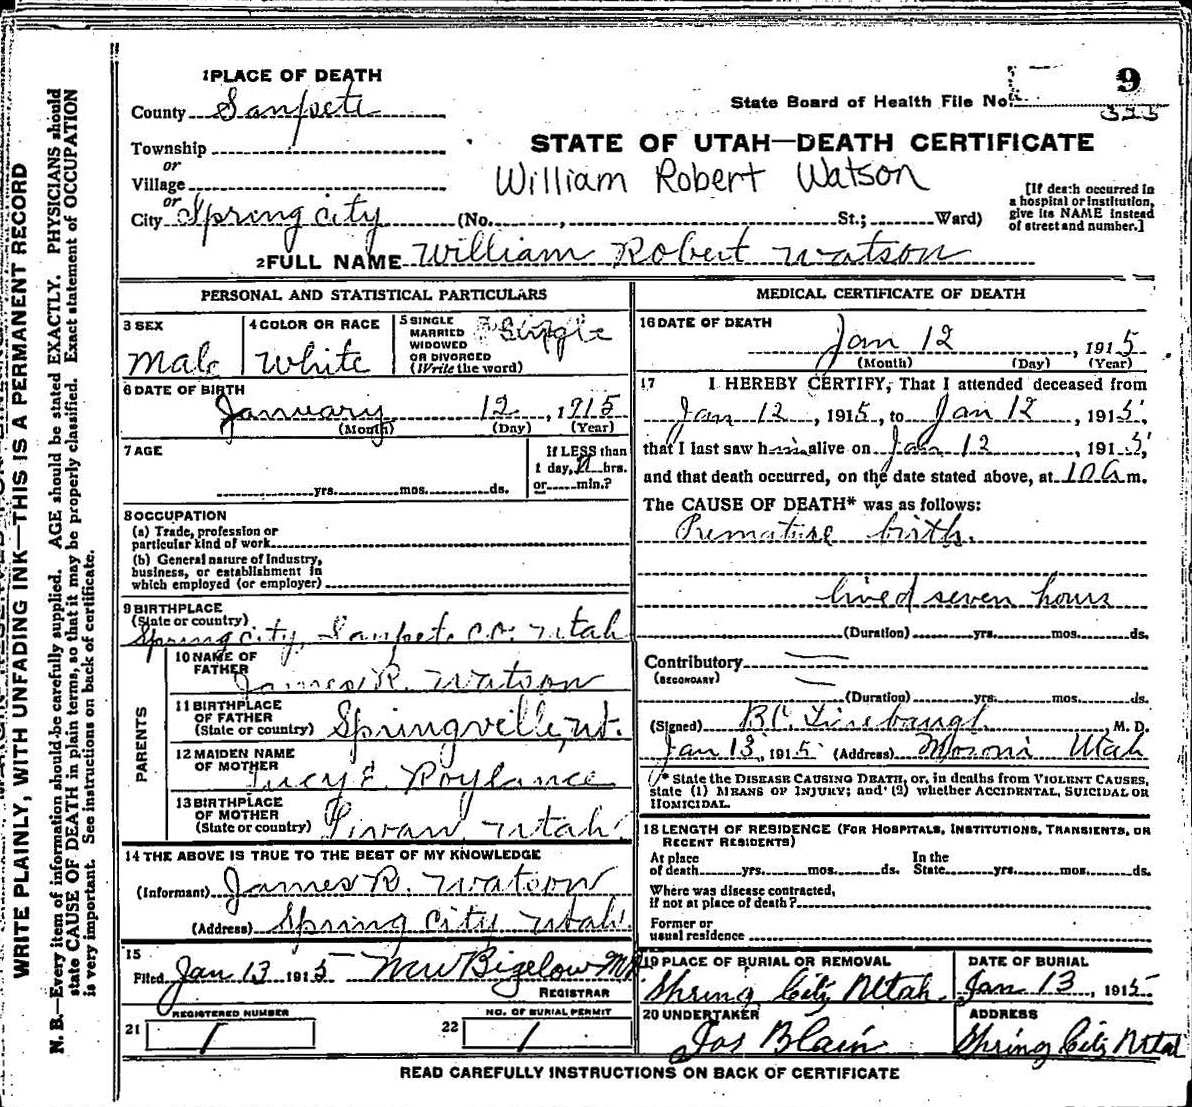 1 PLACE OF DEATH
County Sanpete
Township
or
Village
or
City Spring City (No. , St.; Ward)
9
State Board of Health File No.
355
STATE OF UTAH—DEATH CERTIFICATE
William Robert Watson
[If death occurred in
a hospital or institution,
give its NAME instead
of street and number.]
2 FULL NAME William Robert Watson
PERSONAL AND STATISTICAL PARTICULARS
3 SEX
Male
4 COLOR OR RACE
White
5 SINGLE
MARRIED
WIDOWED
OR DIVORCED
(Write the word)
Single
6 DATE OF BIRTH
January 12, 1915
(Month) (Day) (Year)
7 AGE
yrs. mos. ds.
If LESS than
1 day, hrs.
or min.?
8 OCCUPATION
(a) Trade, profession or
particular kind of work
(b) General nature of industry,
business, or establishment in
which employed (or employer)
9 BIRTHPLACE
(State or country)
Spring City, Sanpete Co. Utah
PARENTS
10 NAME OF
FATHER
James R. Watson
11 BIRTHPLACE
OF FATHER
(State or country)
Springville, Ut.
12 MAIDEN NAME
OF MOTHER
Lucy E. Roylance
13 BIRTHPLACE
OF MOTHER
(State or country)
Utah
14 THE ABOVE IS TRUE TO THE BEST OF MY KNOWLEDGE
(Informant) James R. Watson
(Address) Spring City Utah
15
Filed Jan 13 1915 Bigelow
REGISTRAR
REGISTERED NUMBER
21 1
NO. OF BURIAL PERMIT
22 1
MEDICAL CERTIFICATE OF DEATH
16 DATE OF DEATH
Jan 12, 1915
(Month) (Day) (Year)
17 I HEREBY CERTIFY, That I attended deceased from
Jan 12, 1915, to Jan 12, 1915,
that I last saw him alive on Jan 12, 1915,
and that death occurred, on the date stated above, at 10 a m.
The CAUSE OF DEATH* was as follows:
Premature birth.
lived seven hours
(Duration) yrs. mos. ds.
Contributory
(SECONDARY)
(Duration) yrs. mos. ds.
(Signed) M. D.
Jan 13, 1915 (Address) Moroni Utah
* State the DISEASE CAUSING DEATH, or, in deaths from VIOLENT CAUSES,
state (1) MEANS OF INJURY; and (2) whether ACCIDENTAL, SUICIDAL OR
HOMICIDAL.
18 LENGTH OF RESIDENCE (FOR HOSPITALS, INSTITUTIONS, TRANSIENTS, OR
RECENT RESIDENTS)
At place
of death yrs. mos. ds.
In the
State yrs. mos. ds.
Where was disease contracted,
if not at place of death?
Former or
usual residence
19 PLACE OF BURIAL OR REMOVAL
Spring City Utah
DATE OF BURIAL
Jan 13, 1915
20 UNDERTAKER
Jos Blain
ADDRESS
Spring City Utah
READ CAREFULLY INSTRUCTIONS ON BACK OF CERTIFICATE
WRITE PLAINLY, WITH UNFADING INK—THIS IS A PERMANENT RECORD
N. B.—Every item of information should be carefully supplied. AGE should be stated EXACTLY. PHYSICIANS should
state CAUSE OF DEATH in plain terms, so that it may be properly classified. Exact statement of OCCUPATION
is very important. See instructions on back of certificate.